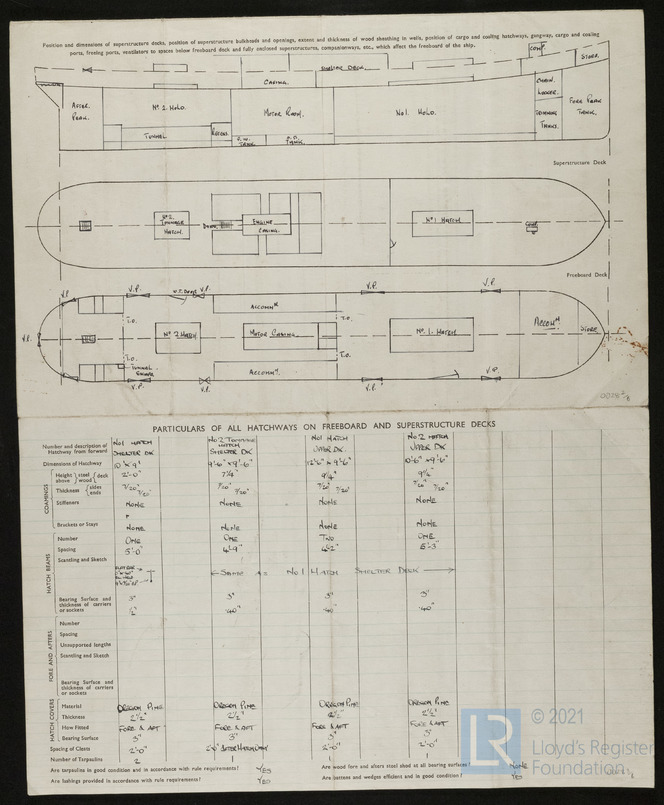 Position and dimensions of superstructure decks, position of superstructure bulkheads and openings, extent and thickness of wood sheathing in wells, position of cargo and coaling hatchways, gangway, cargo and coaling
ports, freeing ports, ventilators to spaces below freeboard deck and fully enclosed superstructures, companionways, etc., which affect the freeboard of the ship.
COMP.
STORE.
SHELTER DECK.
CASING.
AFTER PEAK.
No 2. HOLD.
MOTOR ROOM.
No1. HOLD.
CHAIN LOCKER.
FORE PEAK TANK.
TUNNEL
RECESS.
TANK.
TANK.
TANKS.
Superstructure Deck
No 2. TONNAGE HATCH.
ENGINE CASING.
No 1 HATCH.
Freeboard Deck
V.P. V.P. W.T. DOORS V.P. V.P. V.P.
ACCOMM
T.O. T.O.
V.P.
No 2 HATCH
MOTOR CASING.
No. 1. HATCH
ACCOMM
STORE
T.O. T.O.
TUNNEL ESCAPE
ACCOMM
V.P. V.P. V.P. V.P.
PARTICULARS OF ALL HATCHWAYS ON FREEBOARD AND SUPERSTRUCTURE DECKS
Number and description of Hatchway from forward
No 1 HATCH SHELTER DK
No 2 TONNAGE HATCH SHELTER DK
No 1 HATCH UPPER DK
No 2 HATCH UPPER DK
Dimensions of Hatchway 10' x 9' 9'-6" x 9'-6" 12'6" x 9'-6" 10'-6" x 9'-6"
COAMINGS
Height above { steel wood } deck 2'-0" 7¼" 9¼" 9¼"
Thickness { sides ends 7/20" 7/20" 7/20" 7/20" 7/20" 7/20" 7/20" 7/20"
Stiffeners NONE NONE NONE NONE
Brackets or Stays NONE NONE NONE NONE
HATCH BEAMS
Number ONE ONE TWO ONE
Spacing 5'-0" 4'-9" 4'-2" 5'-3"
Scantling and Sketch
← SAME AS No 1 HATCH SHELTER DECK →
Bearing Surface and thickness of carriers or sockets 3" 3" 3" 3"
½" ·40" ·40" ·40"
FORE AND AFTERS
Number
Spacing
Unsupported lengths
Scantling and Sketch
Bearing Surface and thickness of carriers or sockets
HATCH COVERS
Material OREGON PINE OREGON PINE OREGON PINE OREGON PINE
Thickness 2½" 2½" 2½" 2½"
How Fitted FORE & AFT FORE & AFT FORE & AFT FORE & AFT
Bearing Surface 3" 3" 3" 3"
Spacing of Cleats 2'-0" 2'-0" 2'-0" 2'-0"
Number of Tarpaulins 2 1 1 1
Are tarpaulins in good condition and in accordance with rule requirements? YES
Are wood fore and afters steel shod at all bearing surfaces? NONE
Are lashings provided in accordance with rule requirements? YES
Are battens and wedges efficient and in good condition? YES
LR
© 2021
Lloyd's Register
Foundation